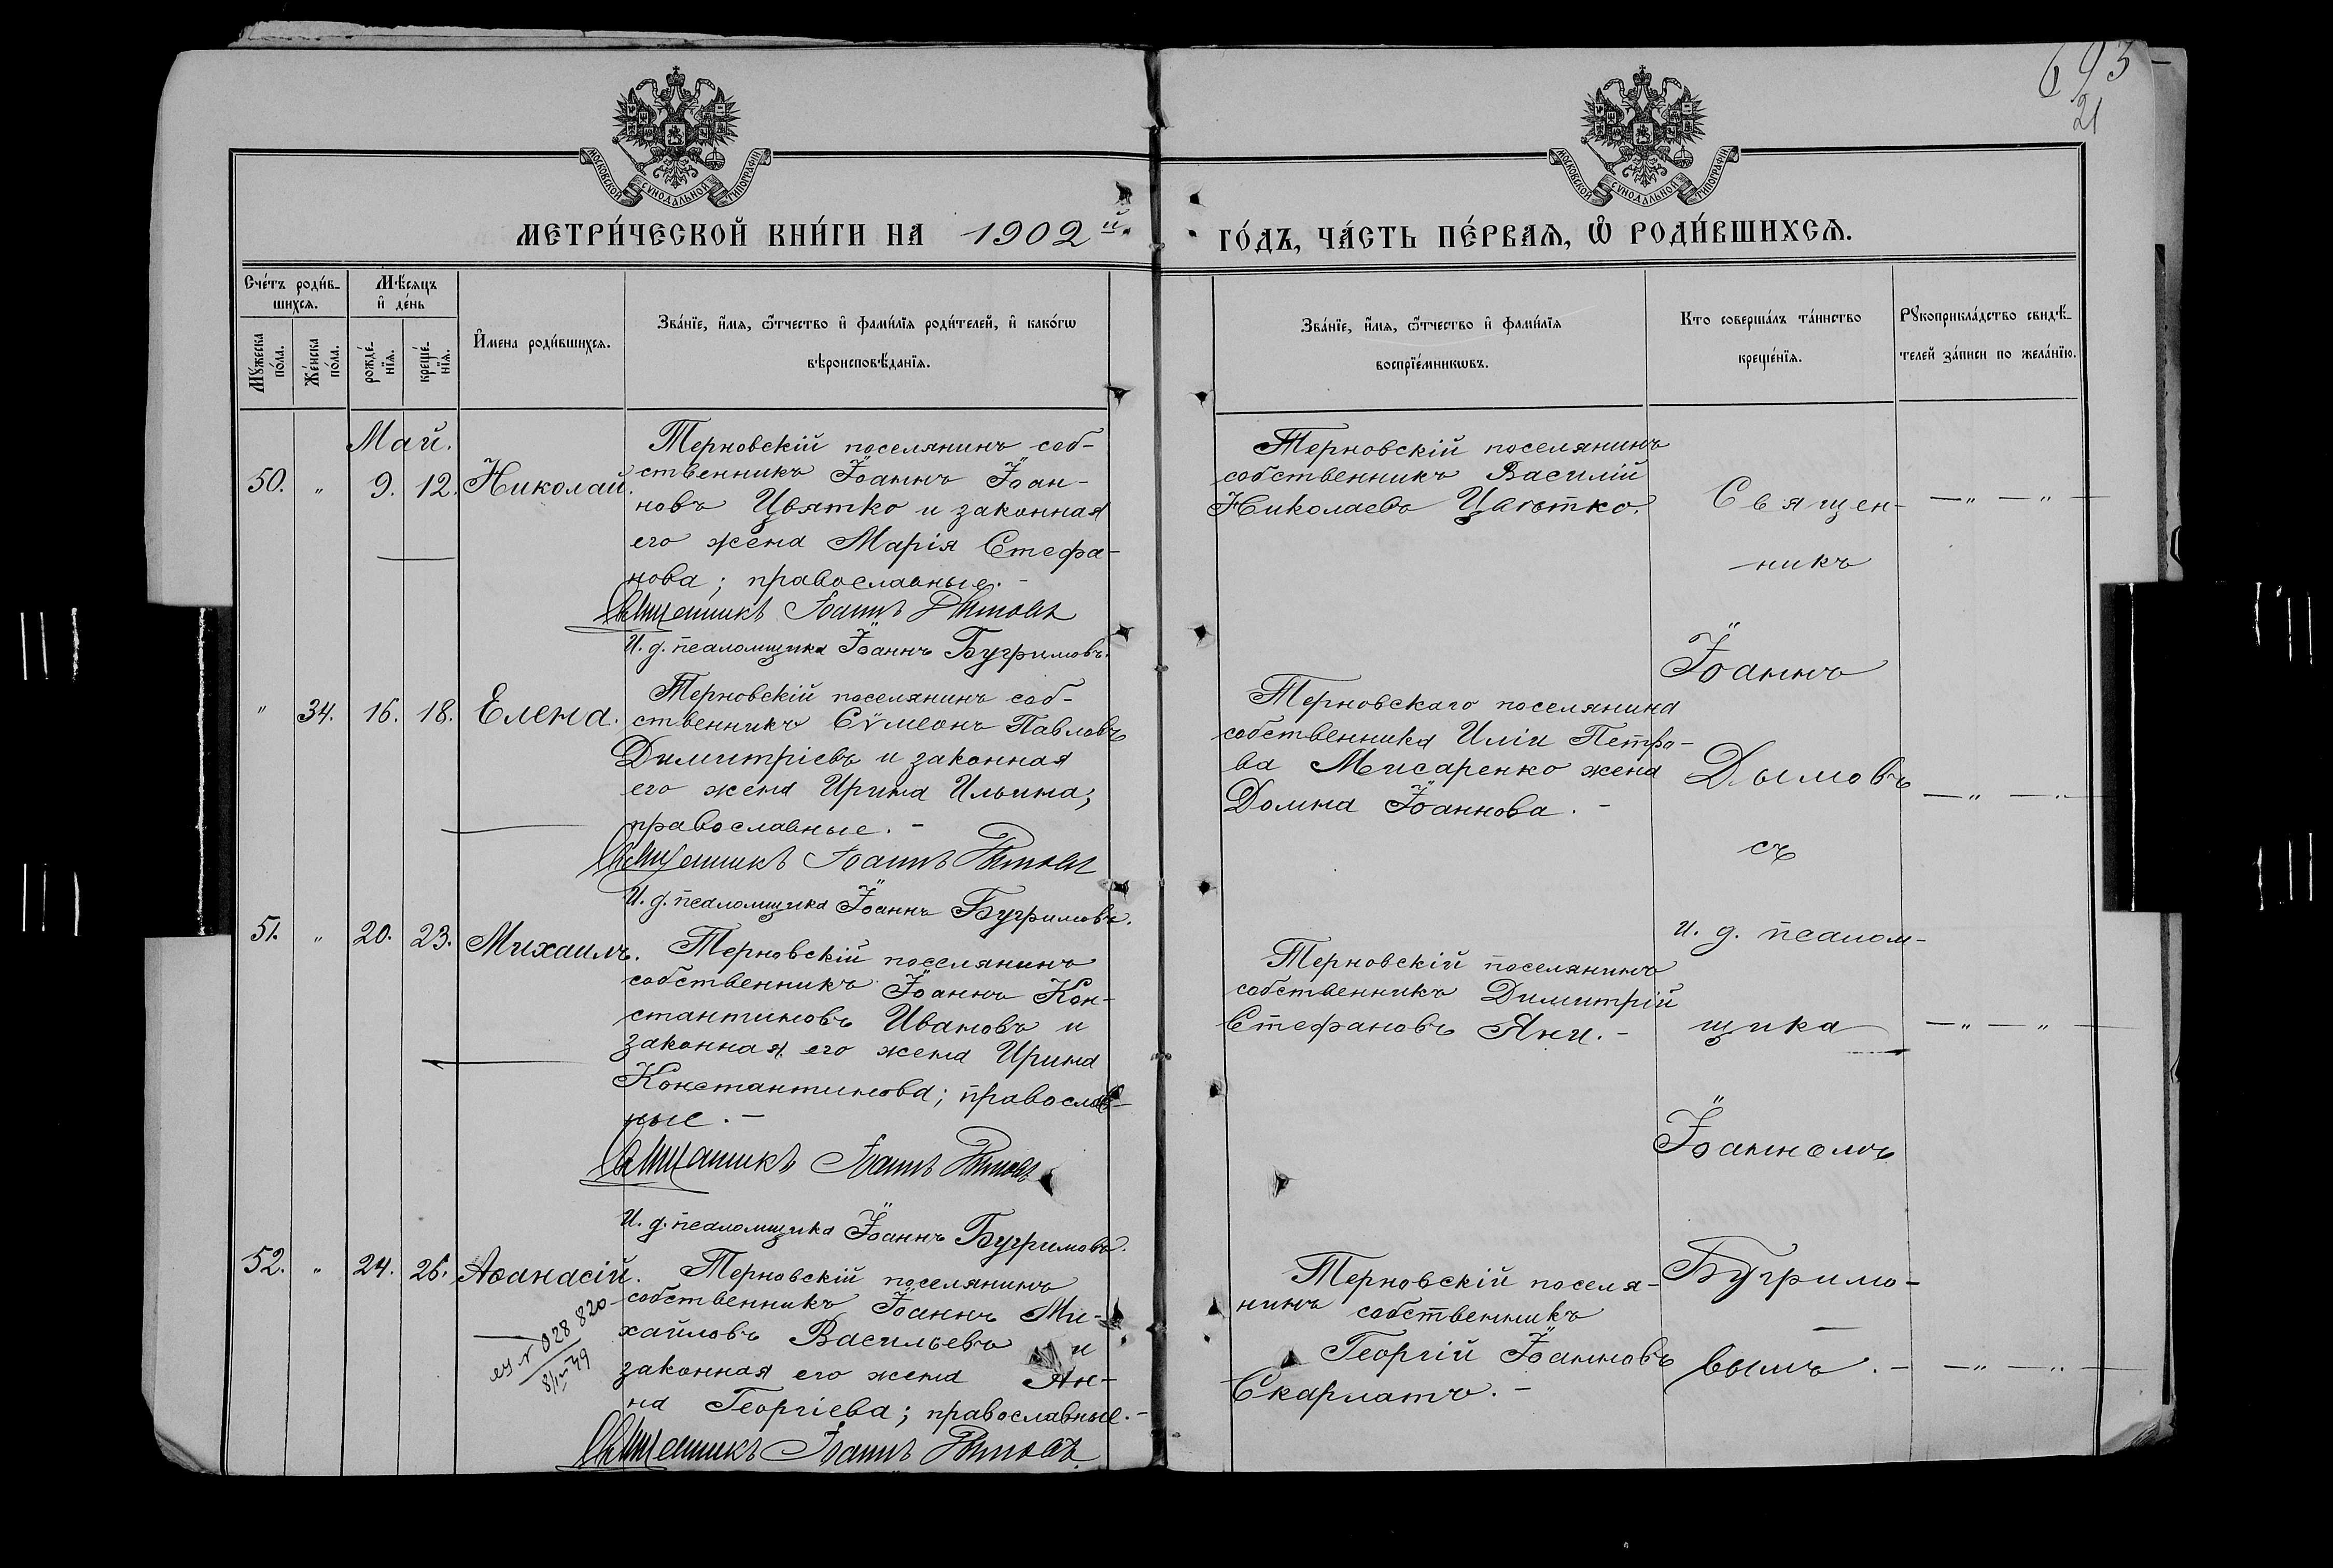 693
21
МОСКОВСКОЙ СѴНОДАЛЬНОЙ ТИПОГРАФІИ
МОСКОВСКОЙ СѴНОДАЛЬНОЙ ТИПОГРАФІИ
МЕТРИ́ЧЕСКОЙ КНИ́ГИ НА 1902й.
ГО́ДЪ, ЧА́СТЬ ПЕ́РВАѦ, Ѽ РОДИ́ВШИХСѦ.
Сче́тъ роди́в-
шихсѧ.
Мѣ́сѧцъ
и҆ де́нь
Мꙋ́жеска
по́ла.
Же́нска
по́ла.
рожде́-
нїѧ.
креще́-
нїѧ.
И҆мена роди́вшихсѧ.
Зва́нїе, и҆́мѧ, ѻ҆́тчество и҆ фами́лїѧ роди́телей, и҆ како́гѡ
вѣроисповѣ́данїѧ.
Зва́нїе, и҆́мѧ, ѻ҆́тчество и҆ фами́лїѧ
воспрїе́мникѡвъ.
Кто соверша́лъ та́инство
креще́нїѧ.
Рꙋкоприкла́дство свидѣ́-
телей за́писи по жела́нїю.
Май.
50. " 9. 12. Николай.
Терновскій поселянинъ соб-
ственникъ Іоаннъ Іоан-
новъ Цвятко и законная
его жена Марія Стефа-
нова; православные.-
Священникъ Іоаннъ Дымовъ
И. д. псаломщика Іоаннъ Бугримовъ.
Терновскій поселянинъ
собственникъ Василій
Николаевъ Цвѣтко.
—"—"—
" 34. 16. 18. Елена.
Терновскій поселянинъ соб-
ственникъ Сѵмеонъ Павловъ
Димитріевъ и законная
его жена Ирина Ильина;
православные.-
Священникъ Іоаннъ Дымовъ
И. д. псаломщика Іоаннъ Бугримовъ.
Терновскаго поселянина
собственника Иліи Петро-
ва Мисаренко жена
Домна Іоаннова.-
—"—"—
51. " 20. 23. Михаилъ.
Терновскій поселянинъ
собственникъ Іоаннъ Кон-
стантиновъ Ивановъ и
законная его жена Ирина
Константинова; православ-
ные.-
Священникъ Іоаннъ Дымовъ
И. д. псаломщика Іоаннъ Бугримовъ.
Терновскій поселянинъ
собственникъ Димитрій
Стефановъ Яни.-
—"—"—
52. " 24. 26. Аѳанасій.
028820
Терновскій поселянинъ
собственникъ Іоаннъ Ми-
хайловъ Васильевъ и
законная его жена Ан-
на Георгіева; православные.-
Священникъ Іоаннъ Дымовъ
Терновскій поселя-
нинъ собственникъ
Георгій Іоанновъ
Скарлатъ.-
—"—"—
Священ-
никъ
Іоаннъ
Дымовъ
съ
и. д. псалом-
щика
Іоанномъ
Бугримо-
вымъ.-